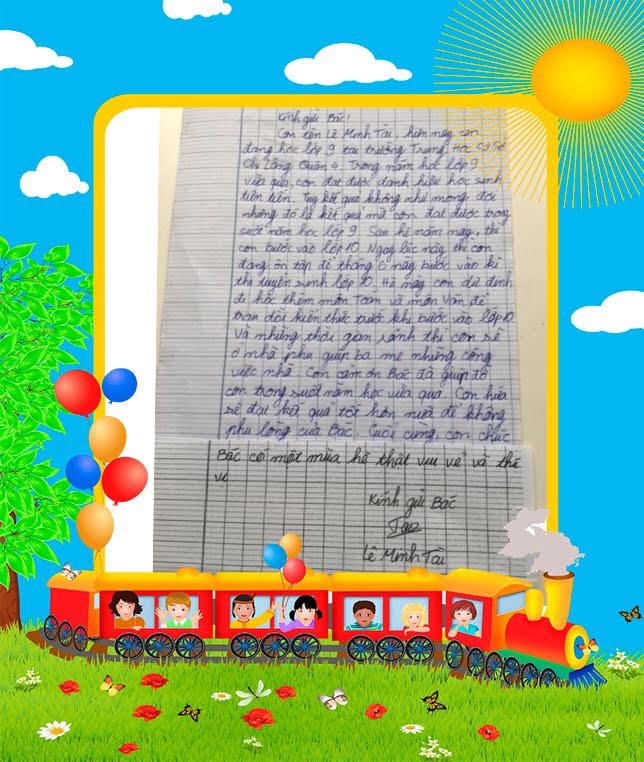 Kính gửi Bác!
Con tên Lê Minh Tài, hiện nay con
đang học lớp 9 tại trường Trung Học Cơ Sở
Chi Lăng Quận 4. Trong năm học lớp 9
vừa qua, con đạt được danh hiệu học sinh
tiên tiến. Tuy kết quả không như mong đợi
nhưng đó là kết quả mà con đạt được trong
suốt năm học lớp 9. Sau hè năm nay, thì
con bước vào lớp 10. Ngay lúc này thì con
đang ôn tập để tháng 6 này bước vào kì
thi tuyển sinh lớp 10. Hè này con dự định
đi học thêm môn Toán và môn Văn để
trau dồi kiến thức trước khi bước vào lớp 10
Và những thời gian rảnh thì con sẽ
ở nhà phụ giúp ba mẹ những công
việc nhà. Con cảm ơn Bác đã giúp đỡ
con trong suốt năm học vừa qua. Con hứa
sẽ đạt kết quả tốt hơn nữa để không
phụ lòng của Bác. Cuối cùng, con chúc
Bác có một mùa hè thật vui vẻ và thú
vị
Kính gửi Bác
Tài
Lê Minh Tài